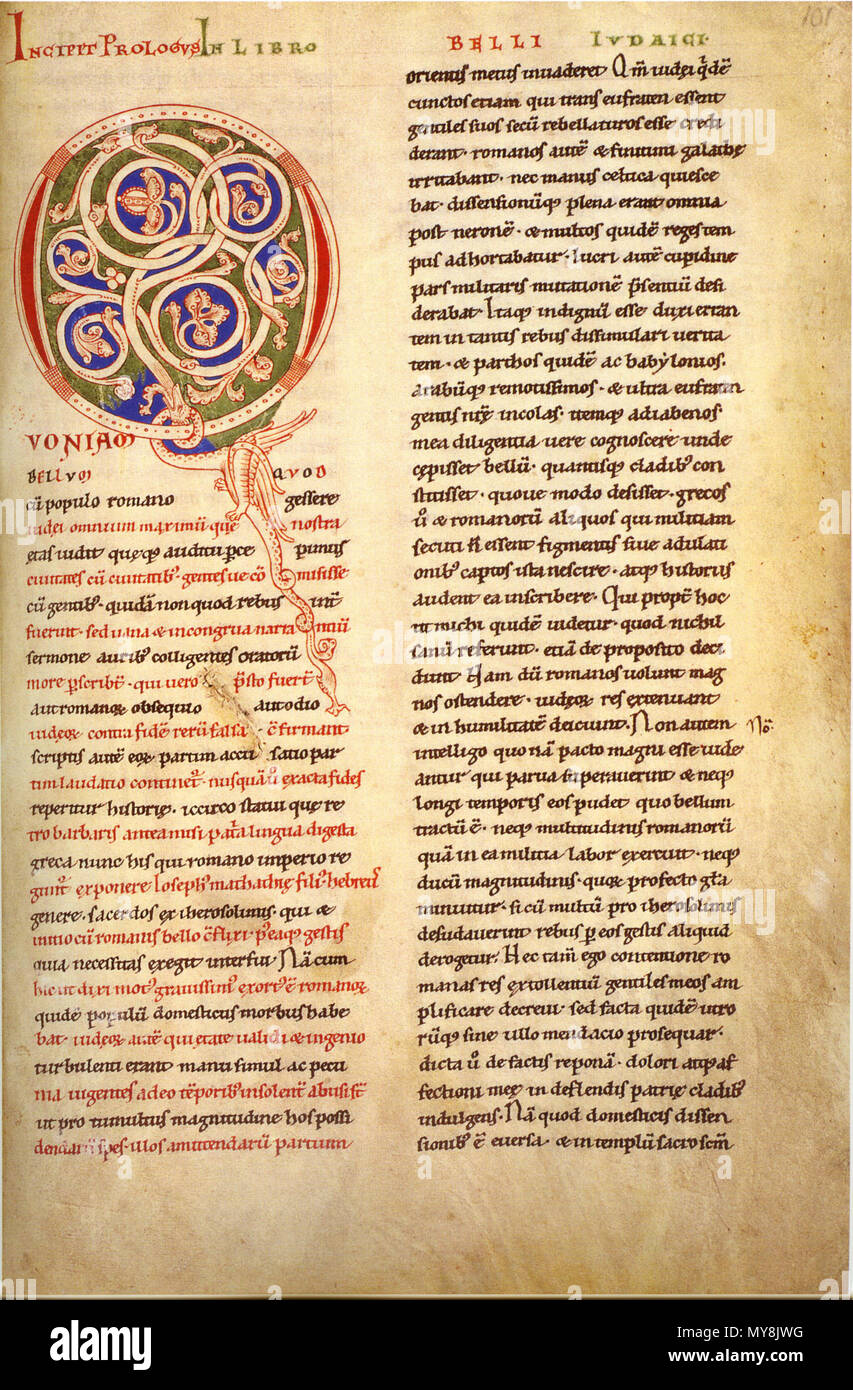 INCIPIT PROLOGVS IN LIBRO BELLI IVDAICI·
101
QVONIAM
BELLVM QVOD
cū populo romano gessere
iudei omnium maximū que nostra
ętas uidit quęq; auditu pce pimus
ciuitates cū ciuitatib; gentes ue cō misisse
cū gentib; quidā non quod rebus int̄
fuerint· sed uana & incongrua narra ntiū
sermone aurib; colligentes oratorū
more pscribt̄· qui uero psto fuert̄
aut romanoꝝ obsequio aut odio
iudeoꝝ contra fidē rerū falsa c̄firmant
scriptis autē eoꝝ partim accu satio par
tim laudatio continet̄· nusquā ū exacta fides
reperitur historię· iccirco statui quę re
tro barbaris antea misi pat̄a lingua digesta
greca nunc his qui romano imperio re
gunt̄ exponere Ioseph; mathathię fili; hebreus
genere· sacerdos ex iherosolimis· qui &
initio cū romanis bello c̄flixi p̄eaq; gestis
quia necessitas exegit interfui· Nā cum
hic ut dixi mot; grauissim; exort; ē romanoꝝ
quidē populū domesticus morbus habe
bat· iudeoꝝ autē qui ętate ualidi & ingenio
turbulenti erant manu simul ac pecu
nia uigentes adeo tēporib; insolent̄ abusi st̄
ut pro tumultus magnitudine hos possi
dendarū spes· illos amittendarū partium
orientis metus inuaderet Qm̄ iudęi q̄dē
cunctos etiam qui trans eufraten essent
gentiles suos secū rebellaturos esse credi
derant· romanos autē & finitimi galathę
irritabant· nec manus celtica quiesce
bat· dissensionūq; plena erant omnia
post neronē· & multos quidē reges tem
pus adhortabatur· lucri autē cupidine
pars militaris mutationē p̄sentiū desi
derabat Itaq; indignū esse duxi erran
tem in tantis rebus dissimulari uerita
tem· & parthos quidē ac babylonios·
arabūq; remotissimos· & ultra eufraten
gentis nr̄ę incolas· itemq; adiabenos
mea diligentia uere cognoscere unde
cępisset bellū· quantisq; cladib; con
stitisset· quoue modo desisset· grecos
ū & romanorū aliquos qui militiam
secuti n̄ essent figmentis siue adulati
onib; captos ista nescire· atq; historias
audent ea inscribere· Qui propt̄ hoc
ut michi quidē uidetur· quod nichil
sanū referunt· etiā de proposito deci
dunt Nam dū romanos uolunt mag
nos ostendere· iudeoꝝ res extenuant
& in humilitatē deiciunt· Non autem
Nō·
intelligo quo nā pacto magni esse uide
antur qui parua superauerint & neq;
longi temporis eos pudet quo bellum
tractū ē· neq; multitudinis romanorū
quā in ea militia labor exercuit· neq;
ducū magnitudinis· quoꝝ profecto gl̄a
minuitur· si cū multū pro iherosolimis
desudauerint rebus p eos gestis aliquid
derogetur· Hec tam̄ ego contentione ro
manas res extollentiū gentiles meos am
plificare decreui· sed facta quidē utro
rūq; sine ullo mendacio prosequar·
dicta ū de factis reponā· dolori atq; af
fectioni meę in deflendis patrię cladib;
indulgens· Nā quod domesticis dissen
sionib; ē euersa· & in templū sacro scm̄
alamy
Image ID: MY8JWG
www.alamy.com